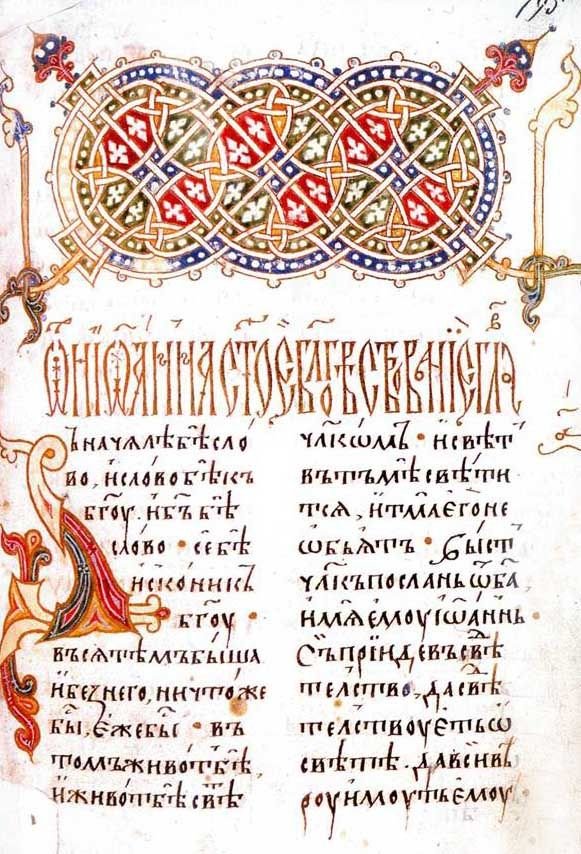 ъ начѧлѣ бѣ сло
во, и слово бѣ къ
бг҃оу. и бъ҃ бѣ
слово · се бѣ
искони къ
бг҃оу
въсѧ тѣмъ быша
и без него, ничтоже
бы҃, еже бы҃ · въ
томъ живот бѣ,
и живот бѣ свѣ
чл҃кѡмъ · и свѣт
въ тъмѣ свѣти
тсѧ, и тма его не
ѡбьѧтъ · быст
чл҃къ посланъ ѿ ба҃
имѧ емоу іѡаннъ
Съ прїиде въ свѣ
телство, да свѣ
телствоуеть ѡ
свѣтѣ. да вси вѣ
роу имоуть емоу